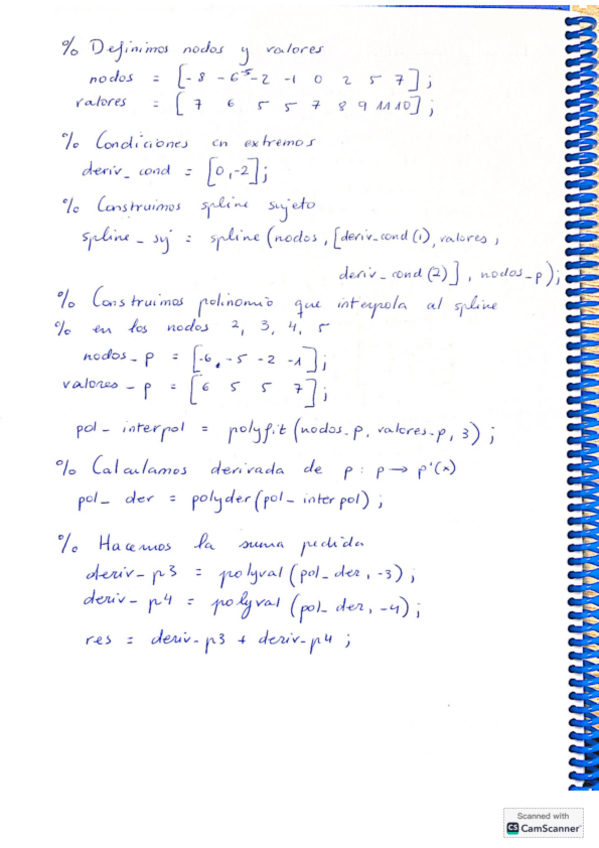 % Definimos nodos y valores
nodos = [-8 -6 -5 -2 -1 0 2 5 7];
valores = [7 6 5 5 7 8 9 11 10];
% Condiciones en extremos
deriv_cond = [0,-2];
% Construimos spline sujeto
spline_suj = spline(nodos, [deriv_cond(1), valores,
deriv_cond(2)], nodos_p);
% Construimos polinomio que interpola al spline
% en los nodos 2, 3, 4, 5
nodos_p = [-6, -5 -2 -1];
valores_p = [6 5 5 7];
pol_interpol = polyfit(nodos_p, valores_p, 3);
% Calculamos derivada de p: p → p'(x)
pol_der = polyder(pol_interpol);
% Hacemos la suma pedida
deriv_p3 = polyval(pol_der, -3);
deriv_p4 = polyval(pol_der, -4);
res = deriv_p3 + deriv_p4;
Scanned with
CS CamScanner